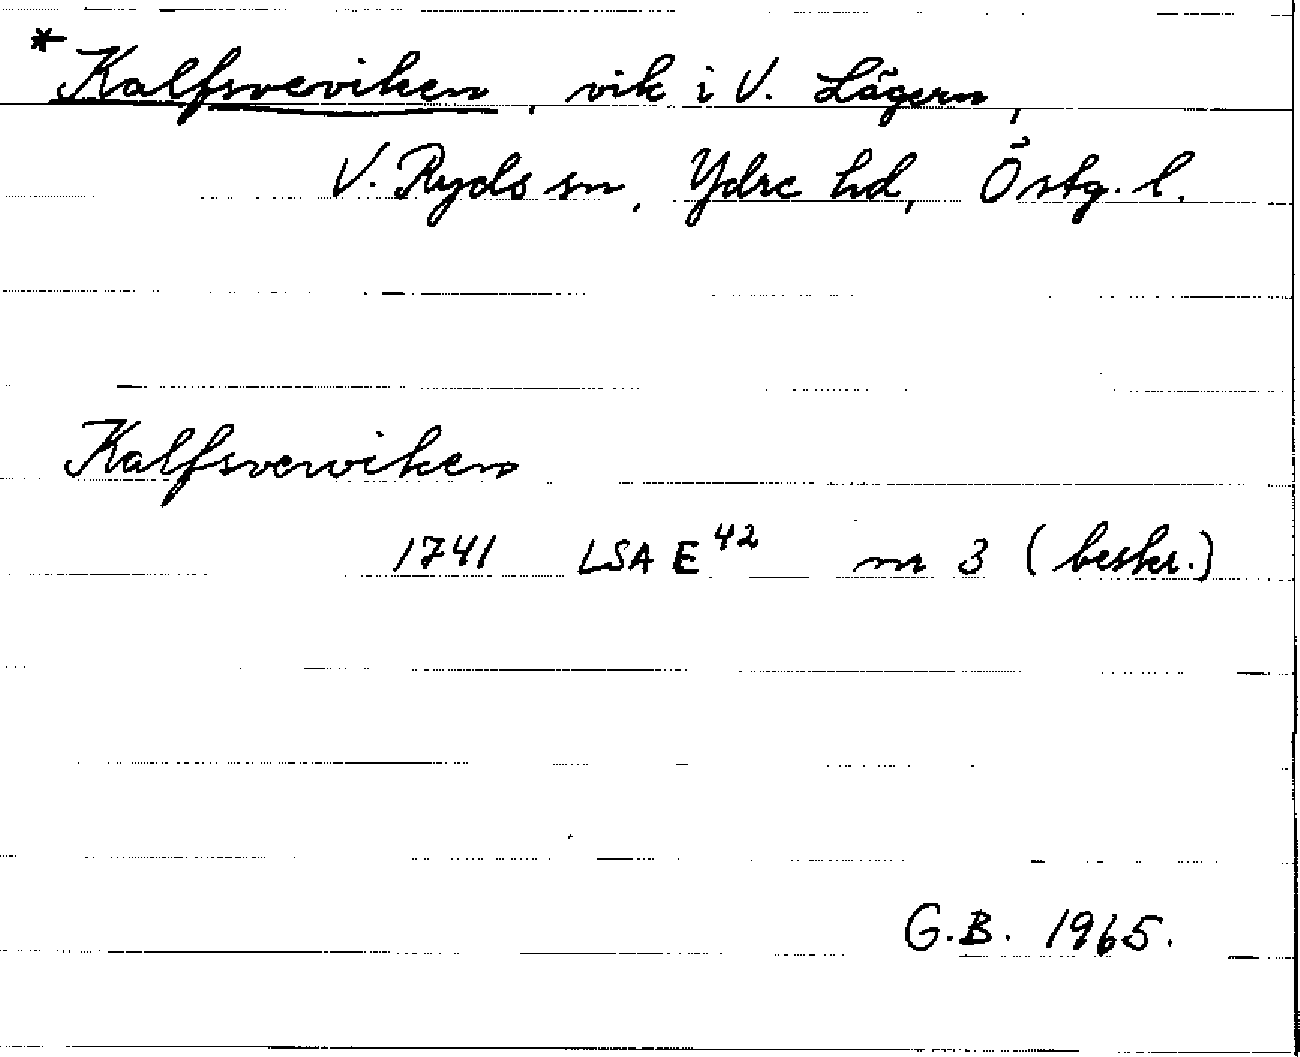 *Kalfsveviken, vik i V. Lägern,
V. Ryds sn, Ydre hd, Östg. l.
Kalfsverviken
1741 LSA E42 nr 3 (beskr.)
G.B. 1965.